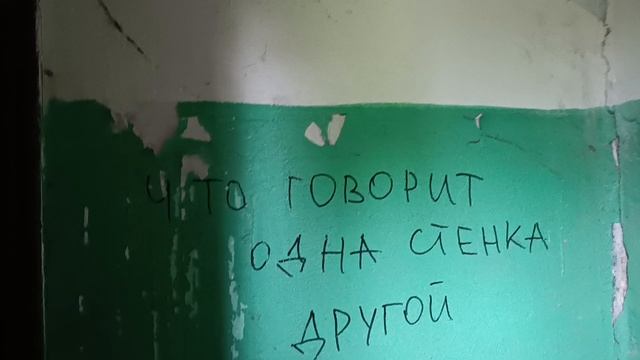 ЧТО ГОВОРИТ
ОДНА СТЕНКА
ДРУГОЙ